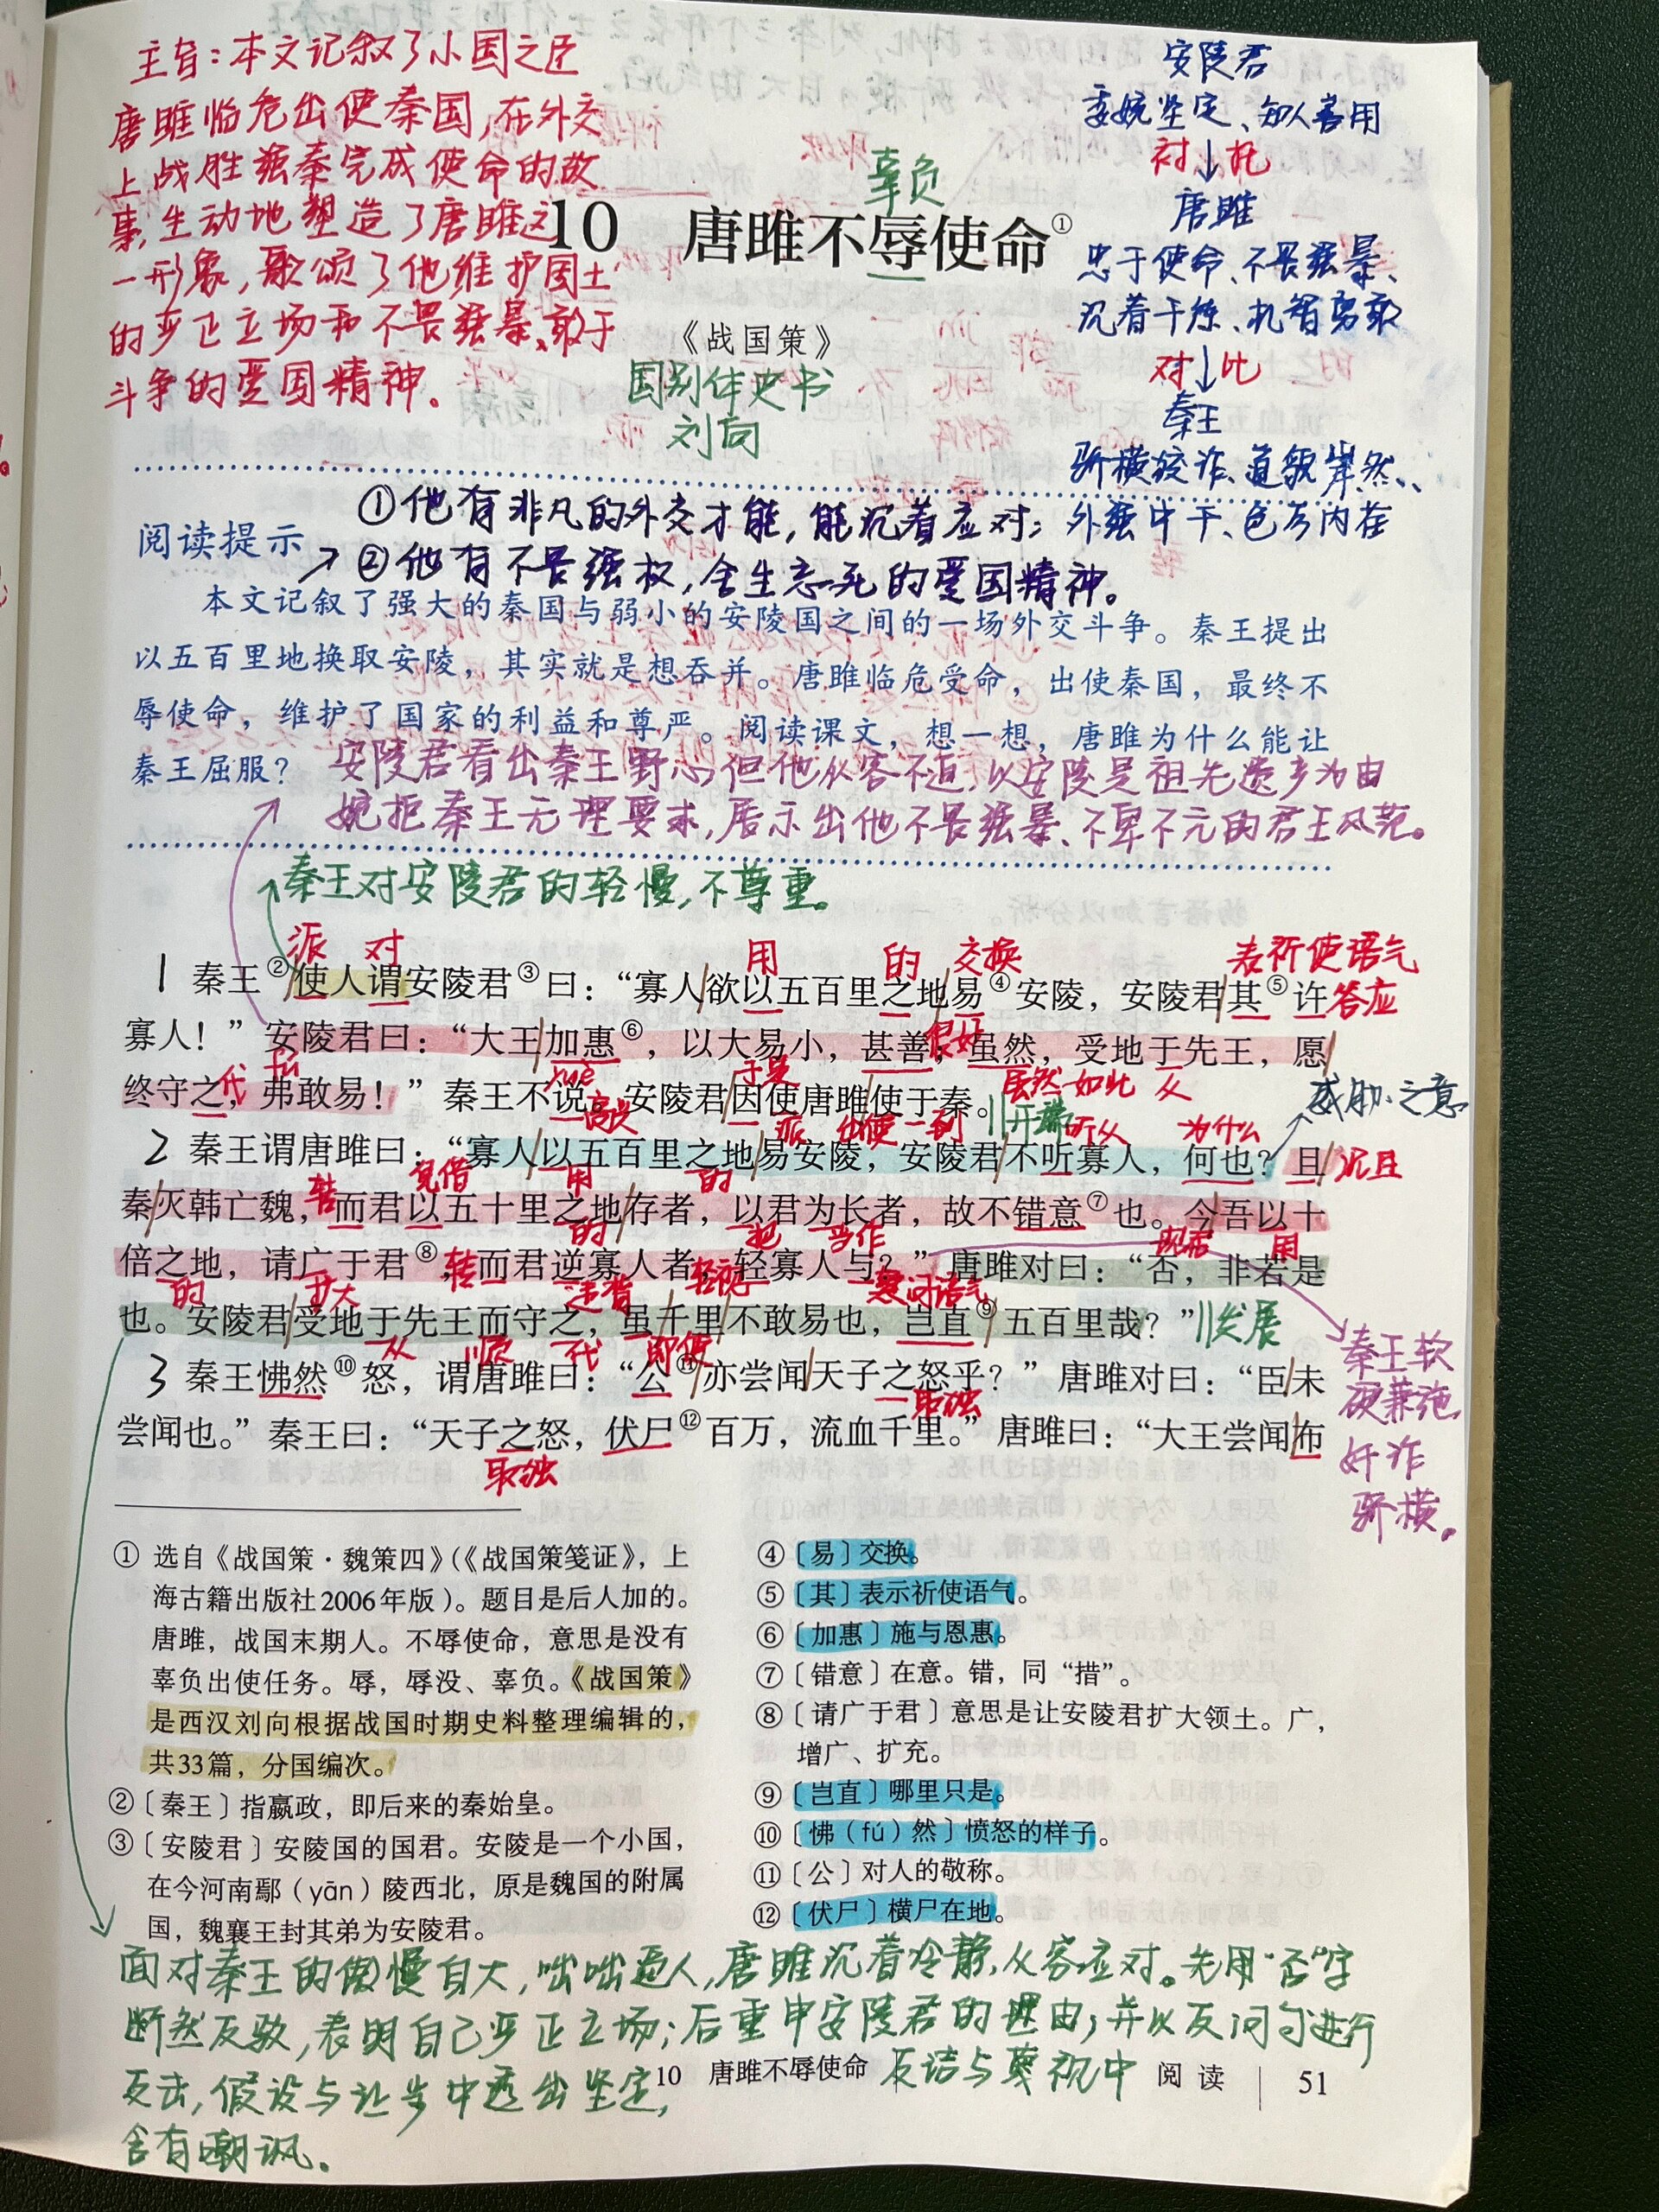 主旨：本文记叙了小国之臣
唐雎临危出使秦国，在外交
上战胜强秦完成使命的故
事，生动地塑造了唐雎这
一形象，歌颂了他维护国土
的严正立场和不畏强暴、敢于
斗争的爱国精神。
安陵君
委婉坚定、知人善用
衬托
唐雎
忠于使命、不畏强暴、
沉着干练、机智勇敢
对比
秦王
骄横狡诈、道貌岸然、
外强中干、色厉内荏
辜负
10 唐雎不辱使命①
《战国策》
国别体史书
刘向
①他有非凡的外交才能，能沉着应对；
阅读提示
②他有不畏强权，舍生忘死的爱国精神。
本文记叙了强大的秦国与弱小的安陵国之间的一场外交斗争。秦王提出
以五百里地换取安陵，其实就是想吞并。唐雎临危受命，出使秦国，最终不
辱使命，维护了国家的利益和尊严。阅读课文，想一想，唐雎为什么能让
秦王屈服？
安陵君看出秦王野心，但他从容不迫，以安陵是祖先遗产为由
婉拒秦王无理要求，展示出他不畏强暴、不卑不亢的君王风范。
秦王对安陵君的轻慢，不尊重。
派 对 用 的 交换 表祈使语气
1 秦王②使人谓安陵君③曰：“寡人欲以五百里之地易④安陵，安陵君其⑤许
答应
寡人！”安陵君曰：“大王加惠⑥，以大易小，甚善；虽然，受地于先王，愿
很好
代 fú yuè 于是 虽然如此 从
终守之，弗敢易！”秦王不说。安陵君因使唐雎使于秦。
高兴 派 出使 到 开端 听从 为什么 威胁之意
2 秦王谓唐雎曰：“寡人以五百里之地易安陵，安陵君不听寡人，何也？且
况且
转 凭借 用 的
秦灭韩亡魏，而君以五十里之地存者，以君为长者，故不错意⑦也。今吾以十
的 把 当作 现在 用
倍之地，请广于君⑧，而君逆寡人者，轻寡人与？”唐雎对曰：“否，非若是
的 扩大 转 违背 轻视 表疑问语气
也。安陵君受地于先王而守之，虽千里不敢易也，岂直⑨五百里哉？”
发展
从 顺 代 即使
3 秦王怫然⑩怒，谓唐雎曰：“公⑪亦尝闻天子之怒乎？”唐雎对曰：“臣未
取独
尝闻也。”秦王曰：“天子之怒，伏尸⑫百万，流血千里。”唐雎曰：“大王尝闻布
取独
秦王软
硬兼施，
奸诈
骄横。
① 选自《战国策·魏策四》（《战国策笺证》，上
海古籍出版社2006年版）。题目是后人加的。
唐雎，战国末期人。不辱使命，意思是没有
辜负出使任务。辱，辱没、辜负。《战国策》
是西汉刘向根据战国时期史料整理编辑的，
共33篇，分国编次。
②〔秦王〕指嬴政，即后来的秦始皇。
③〔安陵君〕安陵国的国君。安陵是一个小国，
在今河南鄢（yān）陵西北，原是魏国的附属
国，魏襄王封其弟为安陵君。
④〔易〕交换。
⑤〔其〕表示祈使语气。
⑥〔加惠〕施与恩惠。
⑦〔错意〕在意。错，同“措”。
⑧〔请广于君〕意思是让安陵君扩大领土。广，
增广、扩充。
⑨〔岂直〕哪里只是。
⑩〔怫（fú）然〕愤怒的样子。
⑪〔公〕对人的敬称。
⑫〔伏尸〕横尸在地。
面对秦王的傲慢自大，咄咄逼人，唐雎沉着冷静，从容应对。先用“否”字
断然反驳，表明自己严正立场；后重申安陵君的理由；并以反问句进行
反击，假设与让步中透出坚定，反诘与蔑视中
含有嘲讽。
10 唐雎不辱使命 阅读 51